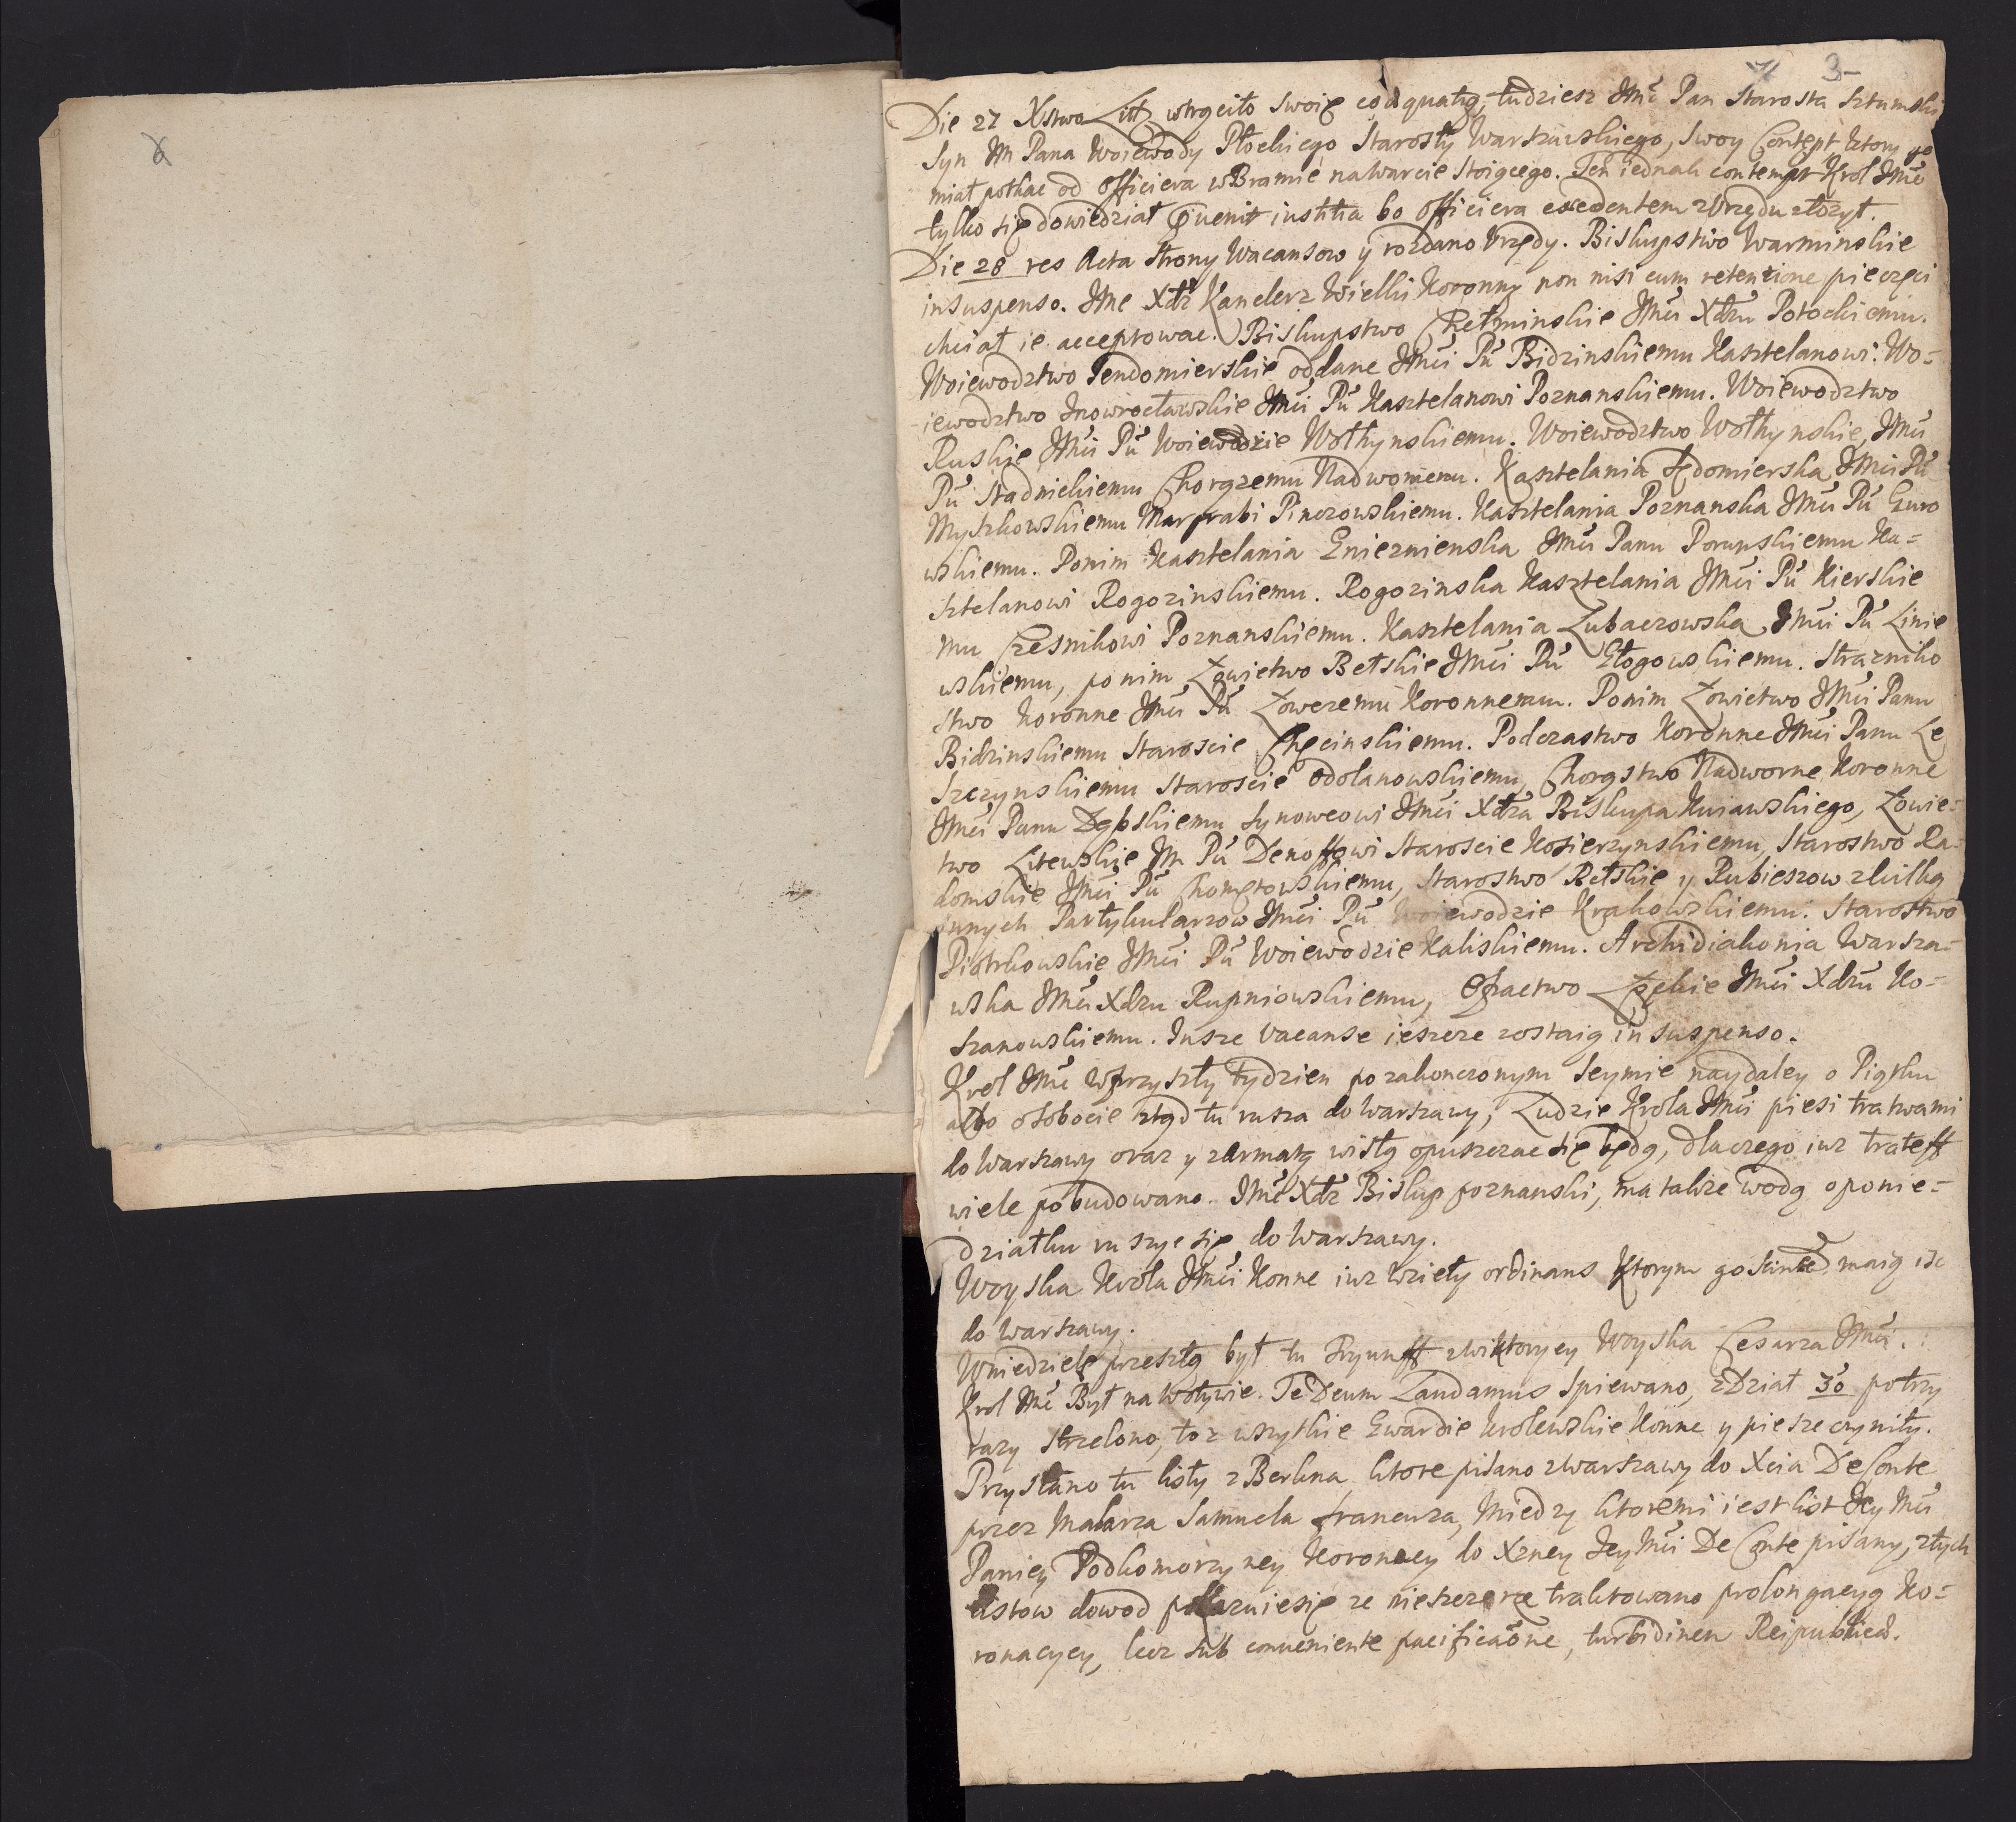 3
Die 27 Xstwo Litt wtrąciło swoię coaequatią, tudziesz Jmć Pan Starosta Sztumski
Syn Jm Pana Woiewody Płockiego Starosty Warszawskiego, Swoy Contept ktory go
miał potkac od officiera w Bramie na warcie stoiącego. Ten iednak contempt Krol Jmć
tylko się dowiedział iustitia bo officiera excedentem z Urzędu złozył.
Die 28 res Acta strony Wacansow y rozdano Urzędy. Biskupstwo Warminskie
in suspenso. Jmc Xdz Kanclerz Wielki Koronny non nisi cum retentione pieczęci
chciał ie acceptowac. Biskupstwo Chełminskie Jmći Xdzu Potockiemu.
Woiewodztwo Sendomierskie oddane Jmći Pu Bidzinskiemu Kasztelanowi. Wo=
iewodztwo Inowrocławskie Jmći Pu Kasztelanowi Poznanskiemu. Woiewodztwo
Ruskie Jmći Pu Woiewodzie Wołhynskiemu. Woiewodztwo Wołhynskie, Jmći
Pu Stadnickiemu Chorązemu Nadwornemu. Kasztelania Sędomierska Jmći Pu
Myszkowskiemu Margrabi Pinczowskiemu. Kasztelania Poznanska Jmći Pu Guro
wskiemu. Ponim Kasztelania Gnieznienska Jmći Panu Ka=
sztelanowi Rogozinskiemu. Rogozinska Kasztelania Jmći Pu Kierskie
mu Czesnikowi Poznanskiemu. Kasztelania Lubaczowska Jmći Pu Linie
wskiemu, po nim Łowietwo Bełskie Jmći Pu Głogowskiemu. Strazniko
stwo Koronne Jmći Pu Łowczemu Koronnemu. Ponim Łowietwo Jmći Panu
Bidzinskiemu Staroscie Chęcinskiemu. Podczastwo Koronne Jmći Panu Le
szczynskiemu Staroscie Odolanowskiemu, Chorąstwo Nadworne Koronne
Jmći Panu Dąbskiemu Synowcowi Jmći Xdza Biskupa Kuiawskiego, Łowie=
two Litewskie Jm Pu Denoffowi Staroscie Kosierzynskiemu, Starostwo Ra=
domskie Jmći Pu Chomętowskiemu, Starostwo Bełskie y Rubieszow z kilką
innych Partykularzow Jmći Pu Woiewodzie Krakowskiemu. Starostwo
Piotrkowskie Jmći Pu Woiewodzie Kaliskiemu. Archidiakonia Warsza=
wska Jmći Xdzu Rupniowskiemu, Jmći Xdzu Ko=
szanowskiemu. Insze Vacanse ieszcze zostaią in suspenso.
Krol Jmć w przyszły tydzien po zakonczonym Seymie naydaley o Piątku
albo o sobocie ztąd tu rusza do Warszawy, Ludzie Krola Jmći piesi tratwami
do Warszawy oraz y z armatą wisłą opuszczac się będą, dlaczego iuz trateff
wiele pobudowano. Jmć Xdz Biskup poznanski, ma takze wodą o ponie=
działku ruszyc się do Warszawy.
Woyska Krola Jmći Konne iuz wzieły ordinans ktorym goscincem maią isc
do Warszawy.
W niedzielę przeszłą był tu Tryumff z wiktoryey Woyska Cesarza Jmći.
Krol Jmć Był na Wotywie. Te Deum Laudamus spiewano, z Dział 30 potrzy
razy strzelono, toz wszytkie Gwardie krolewskie Konne y piesze czyniły.
Przysłano tu listy z Berlina ktore pisano z Warszawy do Xcia De Conte
przez Malarza Samuela francuza, Miedzy ktoremi iest list Jey Mći
Paniey Podkomorzyney Koronney do Xzney Jey Mći De Conte pisany, z tych
listow dowod pokazuie się ze nieszczerze traktowano prolongacyą Ko=
ronacyey, lecz sub conveniente pacificatione, turbidinem Reipublicae.